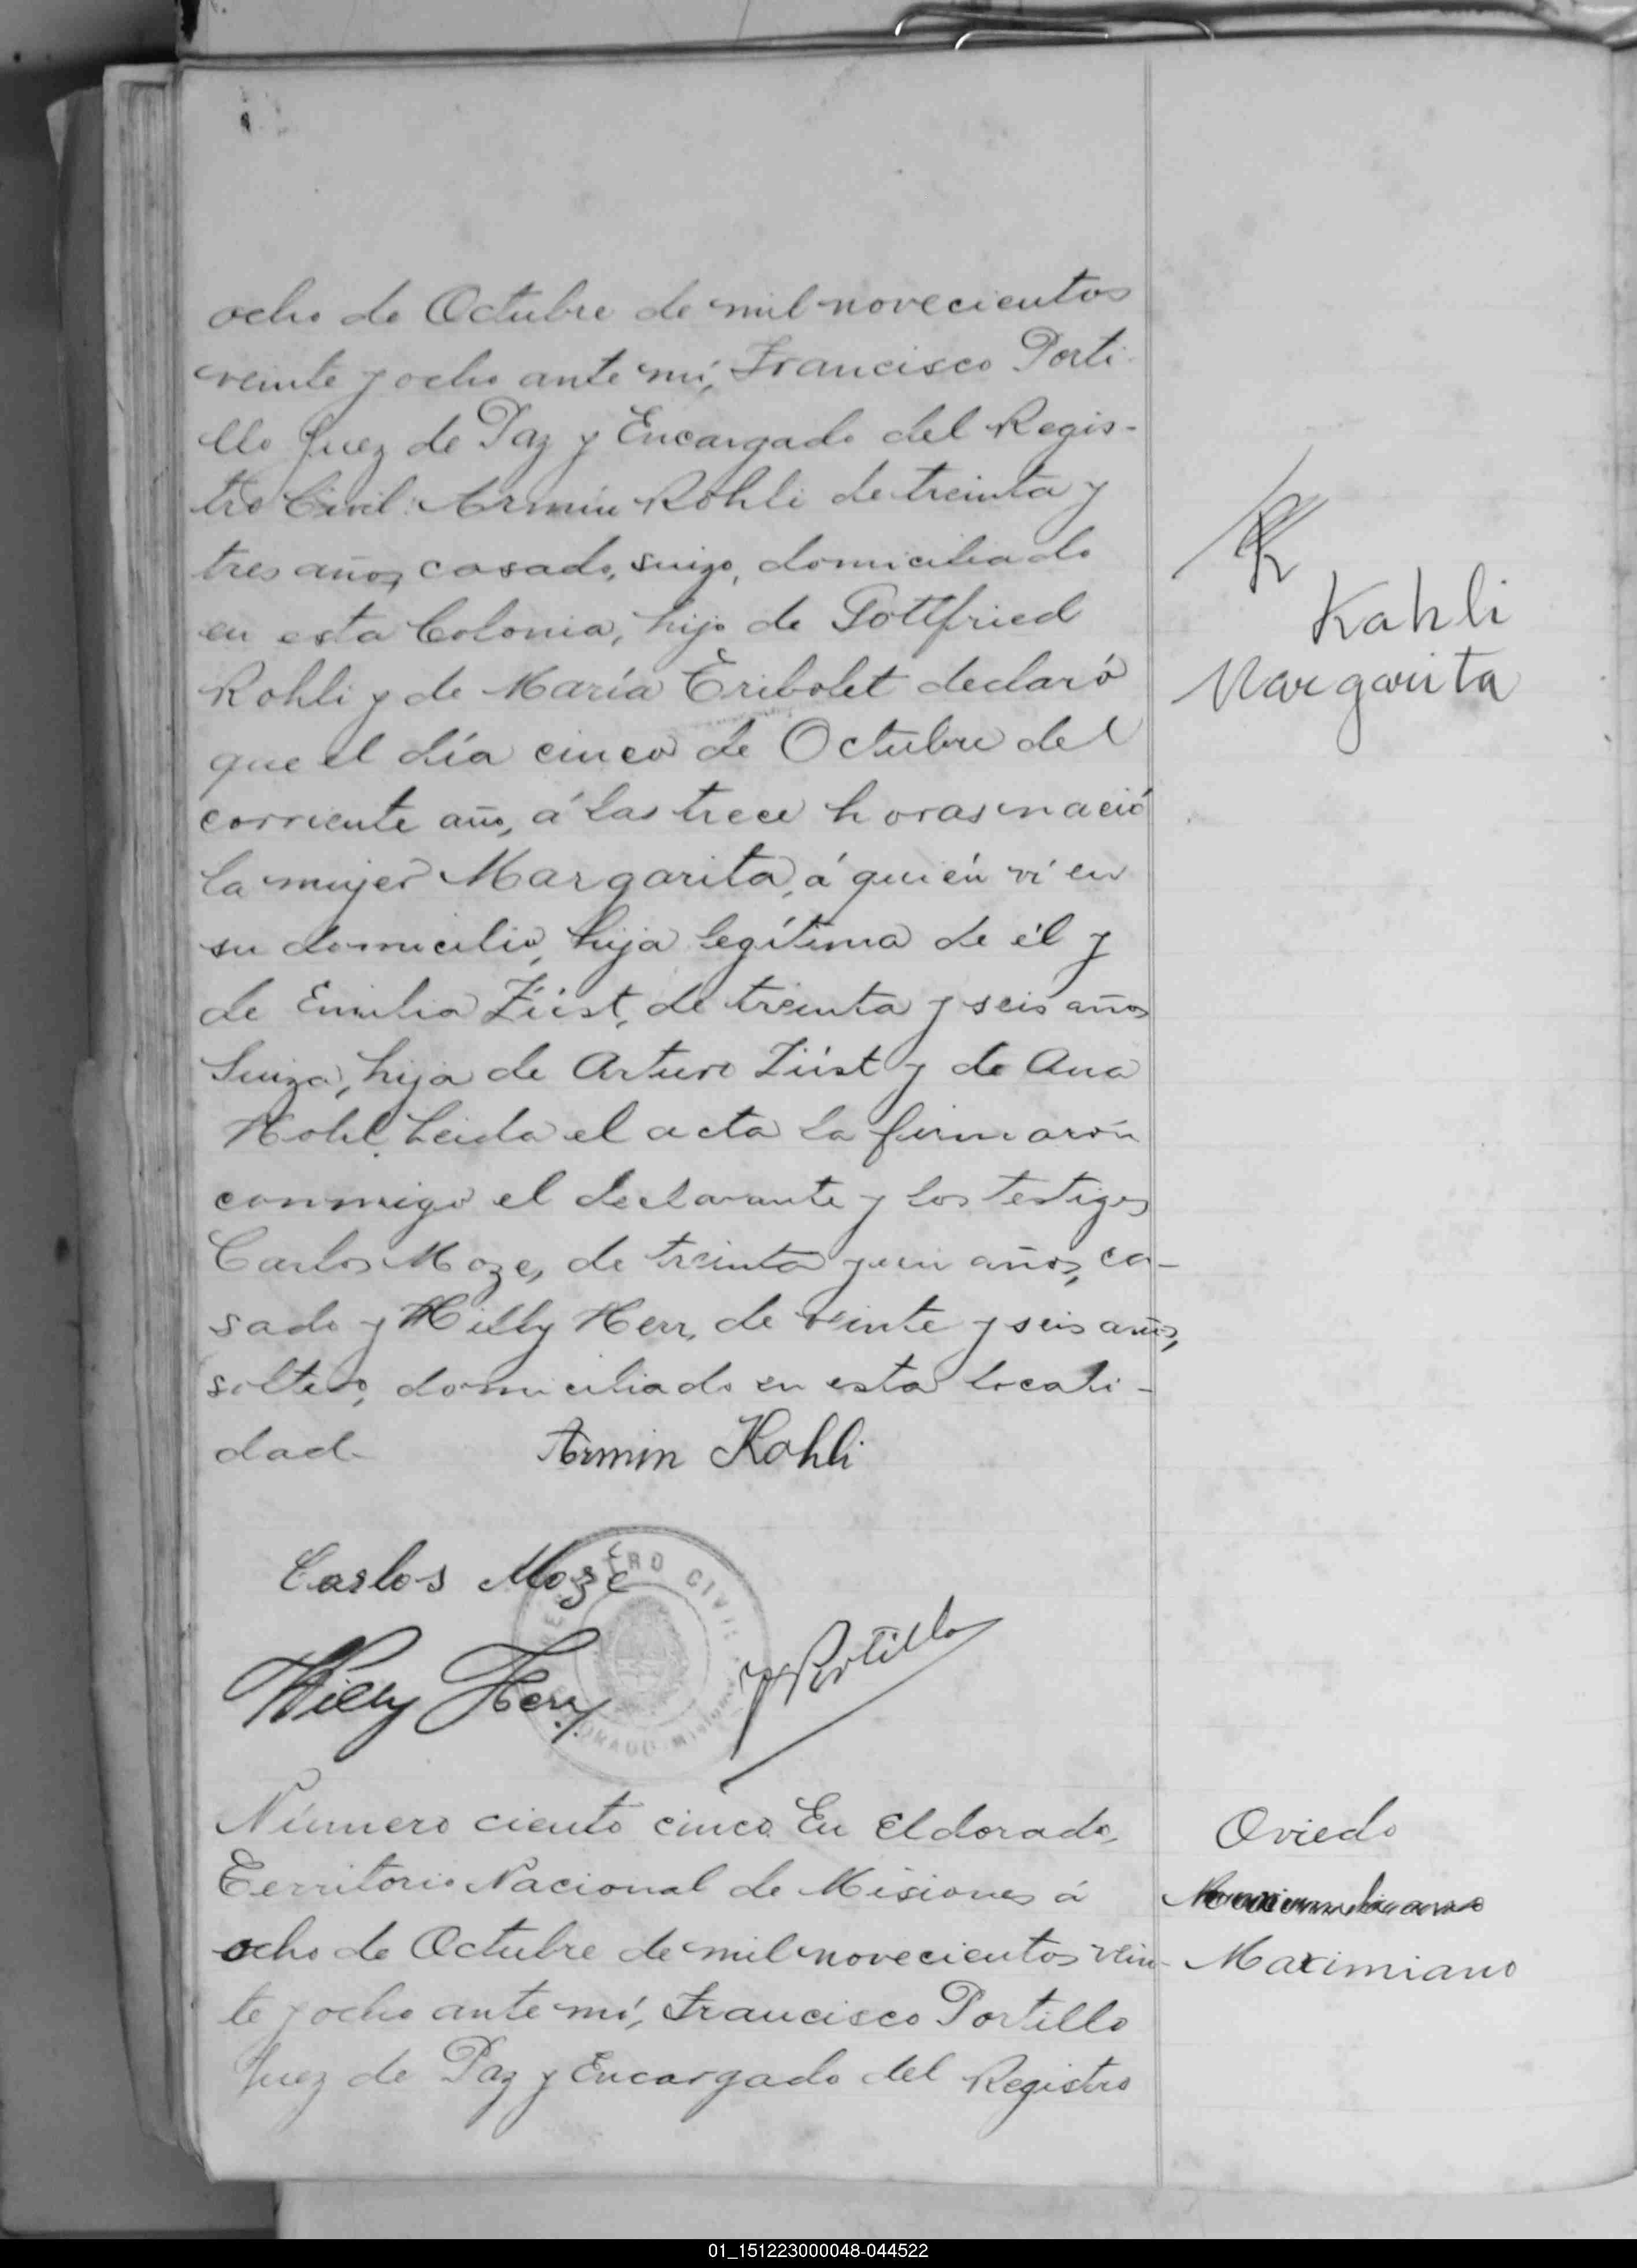 ocho de Octubre de mil novecientos
veinte y ocho ante mí, Francisco Porti-
llo Juez de Paz y Encargado del Regis-
tro Civil: Armin Kohli de treinta y
tres años, casado, suizo, domiciliado
en esta Colonia, hijo de Gottfried
Kohli y de María Tribolet declaró
que el día cinco de Octubre del
corriente año, á las trece horas nació
la mujer Margarita, á quién ví en
su domicilio, hija legítima de él y
de Emilia Züst, de treinta y seis años
Suiza, hija de Arturo Züst y de Ana
Hohl. Leida el acta la firmarón
conmigo el declarante y los testigos
Carlos Moze, de treinta y un años, ca-
sado y Willy Herr, de veinte y seis años,
soltero, domiciliado en esta locali-
dad.
Armin Kohli
Carlos Moze
REGISTRO CIVIL
Willy Herr
F Portillo
Misiones
K
Kahli
Margarita
Número ciento cinco. En Eldorado,
Territorio Nacional de Misiones á
ocho de Octubre de mil novecientos vein-
te y ocho ante mí, Francisco Portillo
Juez de Paz y Encargado del Registro
Oviedo
Maximiano
01_151223000048-044522